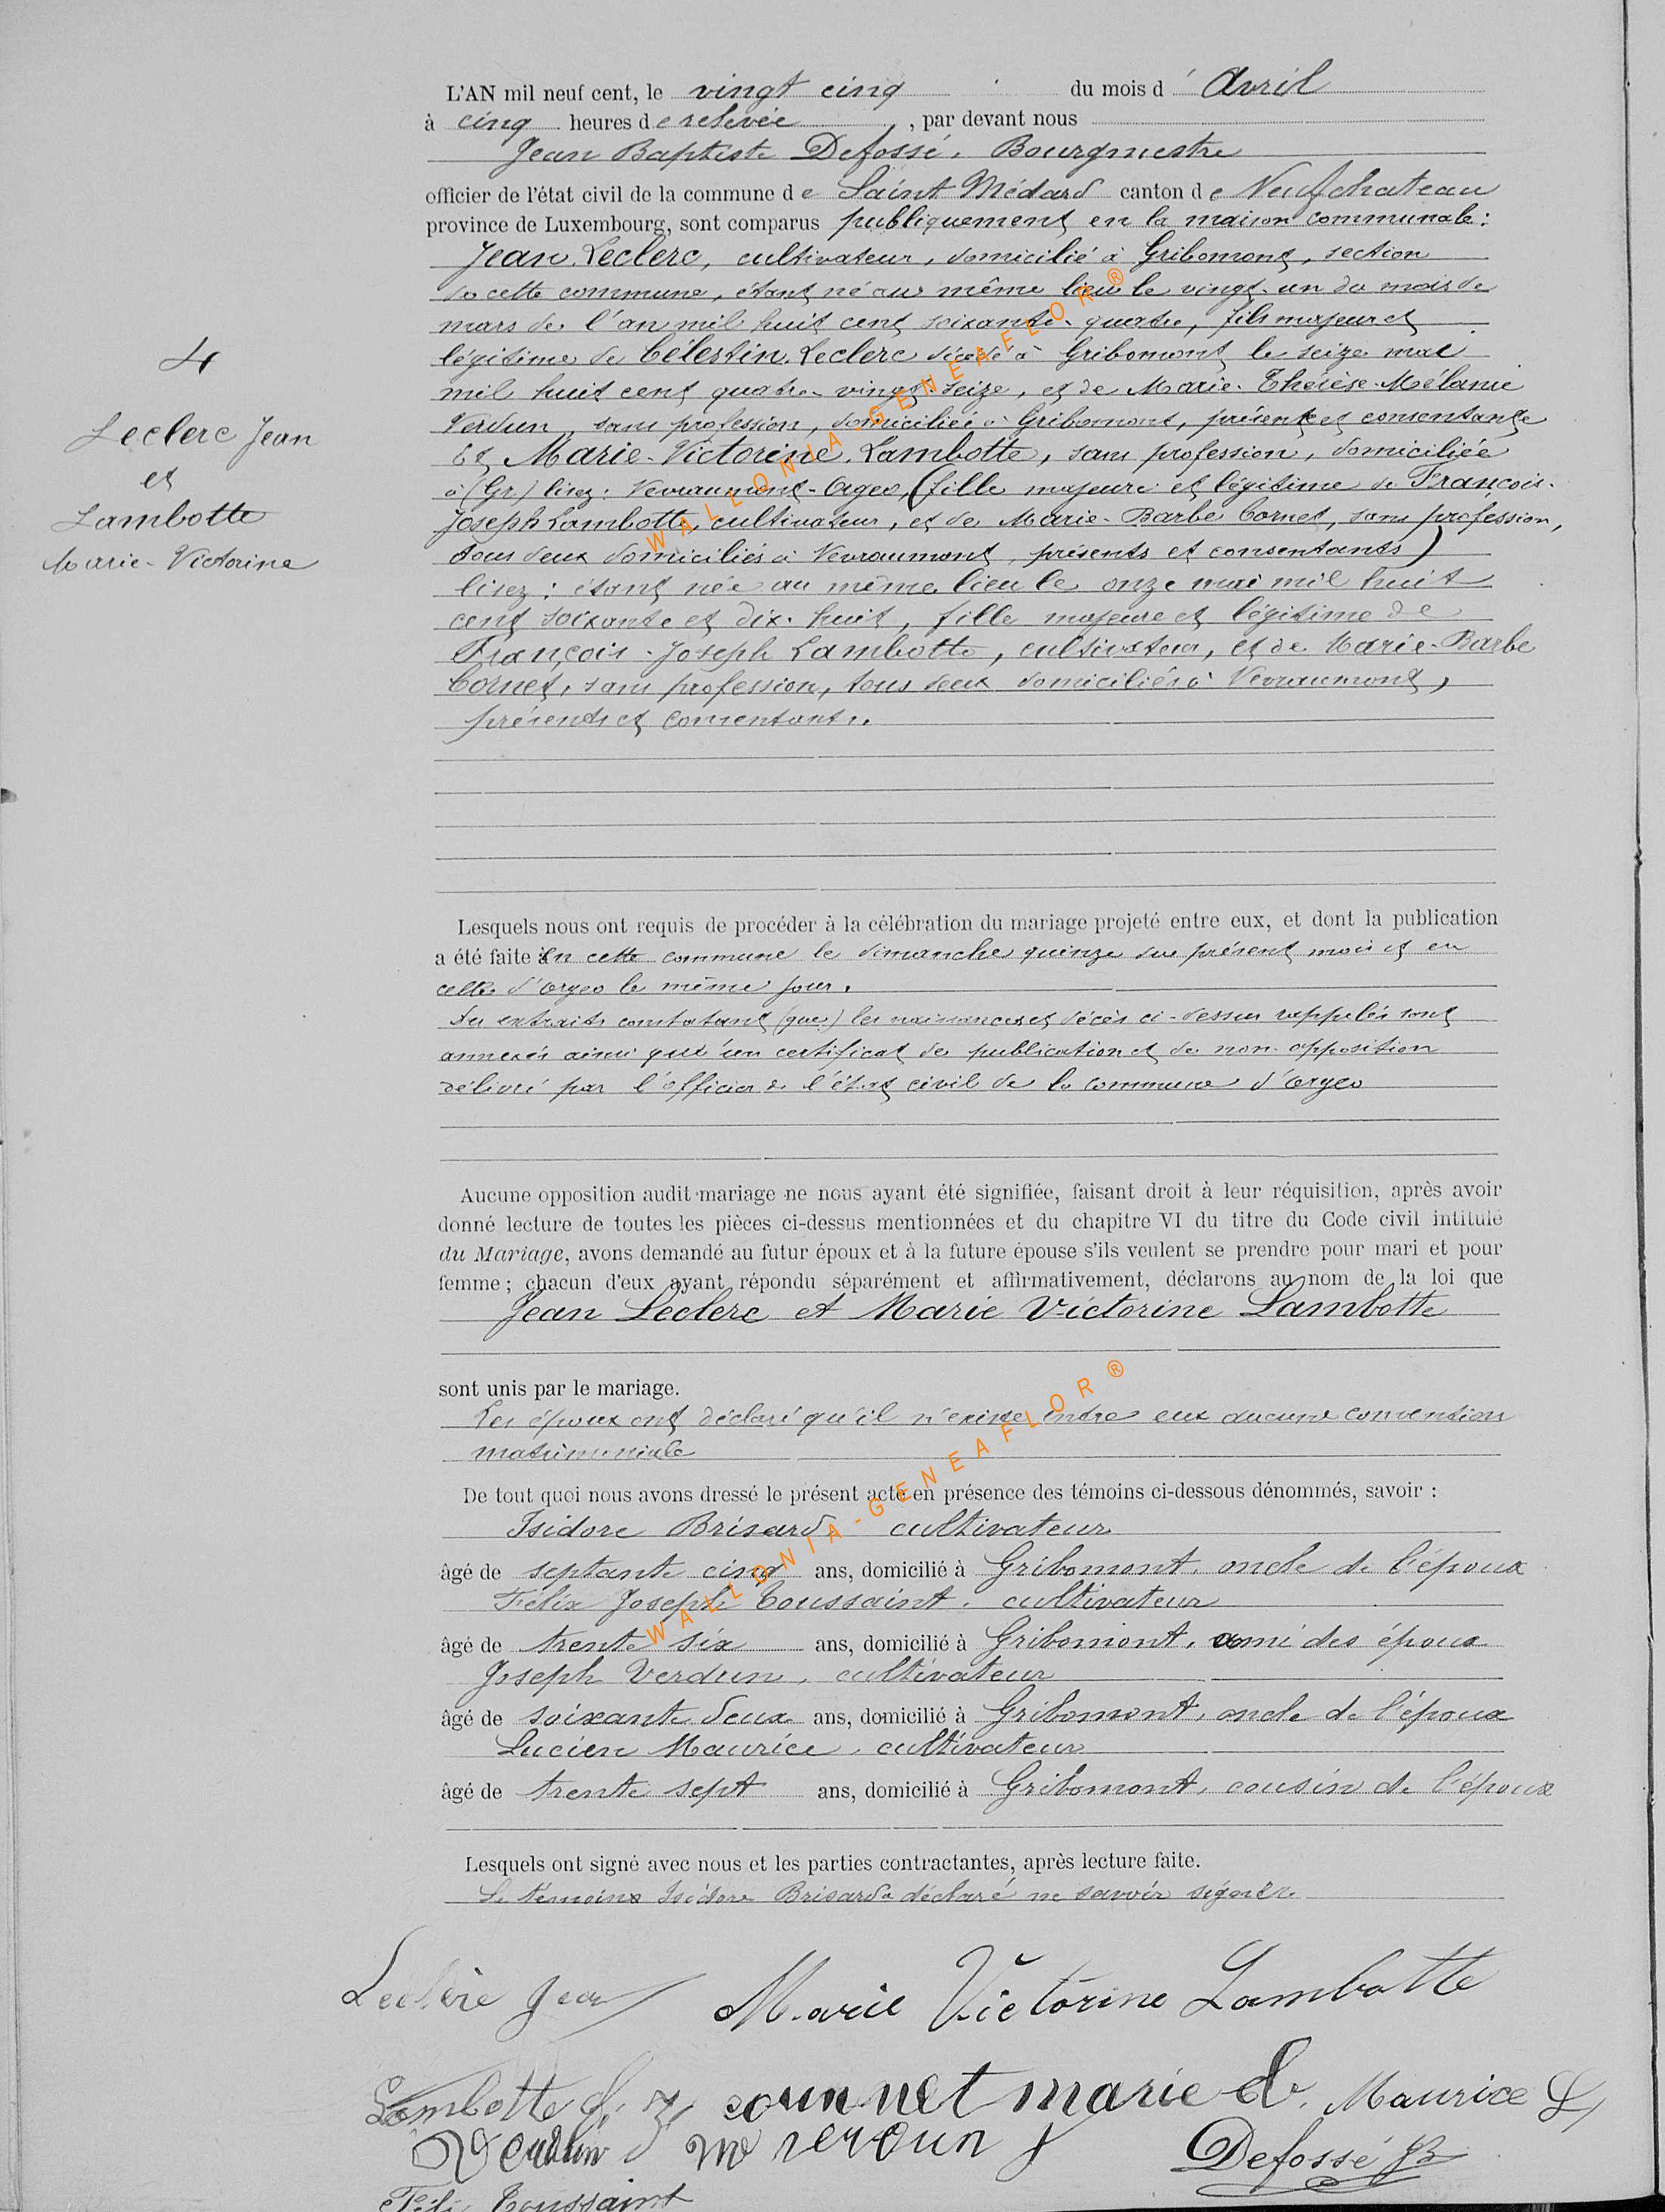 L'AN mil neuf cent, le vingt cinq du mois d'Avril
à cinq heures de relevée, par devant nous
Jean Baptiste Defossé, Bourgmestre
officier de l'état civil de la commune de Saint Médard canton de Neufchateau
province de Luxembourg, sont comparus publiquement en la maison communale :
Jean Leclerc, cultivateur, domicilié à Gribomont, section
de cette commune, étant né au même lieu le vingt-un du mois de
mars de l'an mil huit cent soixante-quatre, fils majeur et
légitime de Célestin Leclerc décédé à Gribomont le seize mai
mil huit cent quatre-vingt-seize, et de Marie-Thérèse-Mélanie
Verdun, sans profession, domiciliée à Gribomont, présente et consentante
Et Marie-Victorine Lambotte, sans profession, domiciliée
à (Gr.) lisez : Nevraumont-Orgeo, (fille majeure et légitime de François-
Joseph Lambotte, cultivateur, et de Marie-Barbe Cornet, sans profession,
tous deux domiciliés à Nevraumont, présents et consentants)
lisez : étant née au même lieu le onze mai mil huit
cent soixante et dix-huit, fille majeure et légitime de
François-Joseph Lambotte, cultivateur, et de Marie-Barbe
Cornet, sans profession, tous deux domiciliés à Nevraumont,
présents et consentants.
4
Leclerc Jean
et
Lambotte
Marie-Victorine
Lesquels nous ont requis de procéder à la célébration du mariage projeté entre eux, et dont la publication
a été faite en cette commune le dimanche quinze du présent mois et en
celle d'Orgeo le même jour.
Les extraits constatant (que) les naissances et décès ci-dessus rappelés sont
annexés ainsi qu'un certificat de publication et de non-opposition
délivré par l'officier de l'état civil de la commune d'Orgeo
Aucune opposition audit mariage ne nous ayant été signifiée, faisant droit à leur réquisition, après avoir
donné lecture de toutes les pièces ci-dessus mentionnées et du chapitre VI du titre du Code civil intitulé
du Mariage, avons demandé au futur époux et à la future épouse s'ils veulent se prendre pour mari et pour
femme ; chacun d'eux ayant répondu séparément et affirmativement, déclarons au nom de la loi que
Jean Leclerc et Marie Victorine Lambotte
sont unis par le mariage.
Les époux ont déclaré qu'il n'existe entre eux aucune convention
matrimoniale
De tout quoi nous avons dressé le présent acte en présence des témoins ci-dessous dénommés, savoir :
Isidore Brisard, cultivateur
âgé de septante cinq ans, domicilié à Gribomont, oncle de l'époux
Félix Joseph Toussaint, cultivateur
âgé de trente six ans, domicilié à Gribomont, ami des époux
Joseph Verdun, cultivateur
âgé de soixante deux ans, domicilié à Gribomont, oncle de l'époux
Lucien Maurice, cultivateur
âgé de trente sept ans, domicilié à Gribomont, cousin de l'époux
Lesquels ont signé avec nous et les parties contractantes, après lecture faite.
Le témoin Isidore Brisard a déclaré ne savoir signer
Leclère Jean Marie Victorine Lambotte
Lambotte cournnet marie Maurice L
Verdun m verdun J Defossé JB
Toussaint
WALLONIA-GENEAFLOR ®
WALLONIA-GENEAFLOR ®